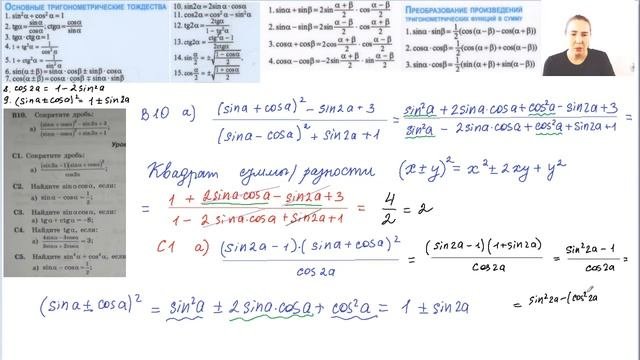 Основные тригонометрические тождества
1. sin²α + cos²α = 1
2. tgα = sinα/cosα; ctgα = cosα/sinα
3. tgα · ctgα = 1
4. 1 + tg²α = 1/cos²α
5. 1 + ctg²α = 1/sin²α
6. sin(α ± β) = sinα · cosβ ± sinβ · cosα
7. cos(α ± β) = cosα · cosβ ∓ sinα · sinβ
8. cos2a = 1 - 2sin²a
9. (sina ± cosa)² = 1 ± sin2a
10. sin2α = 2sinα · cosα
11. cos2α = cos²α − sin²α
12. tg2α = 2tgα/(1 − tg²α)
13. ctg2α = (ctg²α − 1)/2ctgα
1. sinα + sinβ = 2sin (α+β)/2 · cos (α−β)/2
3. cosα + cosβ = 2cos (α+β)/2 · cos (α−β)/2
Преобразование произведений
тригонометрических функций в сумму
1. sinα · sinβ = ½(cos(α−β) − cos(α+β))
2. cosα · cosβ = ½(cos(α−β) + cos(α+β))
3. sinα · cosβ = ½(sin(α+β) + sin(α−β))
В10. Сократите дробь:
С1. Сократите дробь:
С2. Найдите sinα cosα, если:
а) sinα − cosα = ½;
С3. Найдите sinα cosα, если:
а) tgα + ctgα = −8;
С4. Найдите tgα, если:
С5. Найдите sin⁴α + cos⁴α, если
а) sinα − cosα = ½;
В10 а) ((sina + cosa)² - sin2a + 3)/((sina - cosa)² + sin2a + 1) = (sin²a + 2sina·cosa + cos²a - sin2a + 3)/(sin²a - 2sina·cosa + cos²a + sin2a + 1) =
Квадрат суммы/разности (x ± y)² = x² ± 2xy + y²
= (1 + 2sina·cosa - sin2a + 3)/(1 - 2sina·cosa + sin2a + 1) = 4/2 = 2
С1 а) ((sin2a - 1)·(sina + cosa)²)/cos2a = ((sin2a - 1)(1 + sin2a))/cos2a = (sin²2a - 1)/cos2a =
(sina ± cosa)² = sin²a ± 2sina·cosa + cos²a = 1 ± sin2a
= sin²2a - (cos²2a